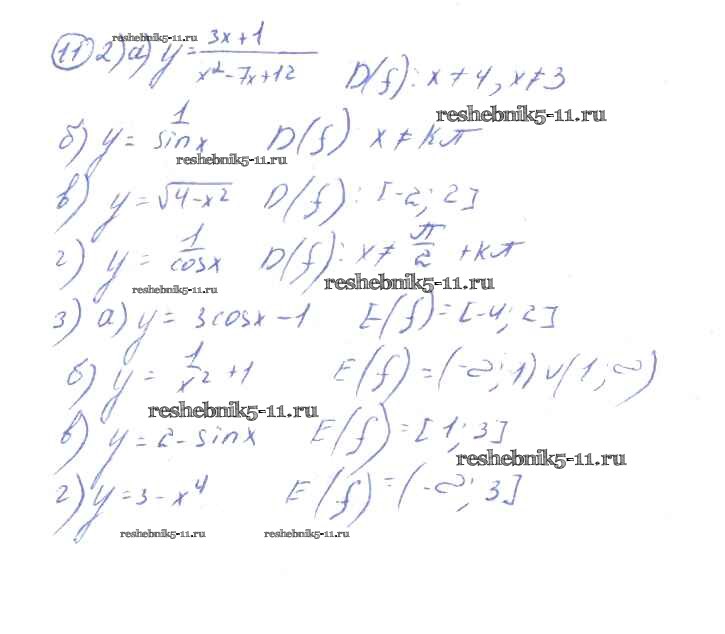 reshebnik5-11.ru
11 2) а) y = 3x+1 / x²-7x+12 D(f): x≠4, x≠3
reshebnik5-11.ru
б) y = 1/sinx D(f) x≠kπ
reshebnik5-11.ru
в) y = √4-x² D(f): [-2; 2]
г) y = 1/cosx D(f): x≠ π/2 +kπ
reshebnik5-11.ru
reshebnik5-11.ru
3) а) y = 3cosx-1 E(f)=[-4; 2]
б) y = 1/x² +1 E(f)=(-∞; 1)∪(1; ∞)
reshebnik5-11.ru
в) y=2-sinx E(f)=[1; 3]
reshebnik5-11.ru
г) y=3-x⁴ E(f)=(-∞; 3]
reshebnik5-11.ru reshebnik5-11.ru